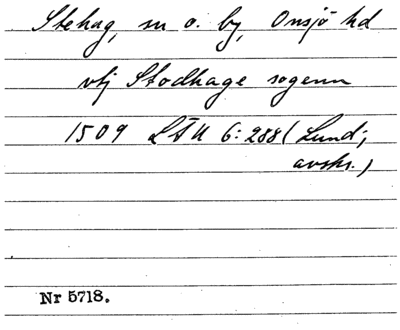 Stehag, sn o. by, Onsjö hd
vtj Stodhage sogenn
1509 LÄU 6:288 (Lund;
avskr.)
Nr 5718.